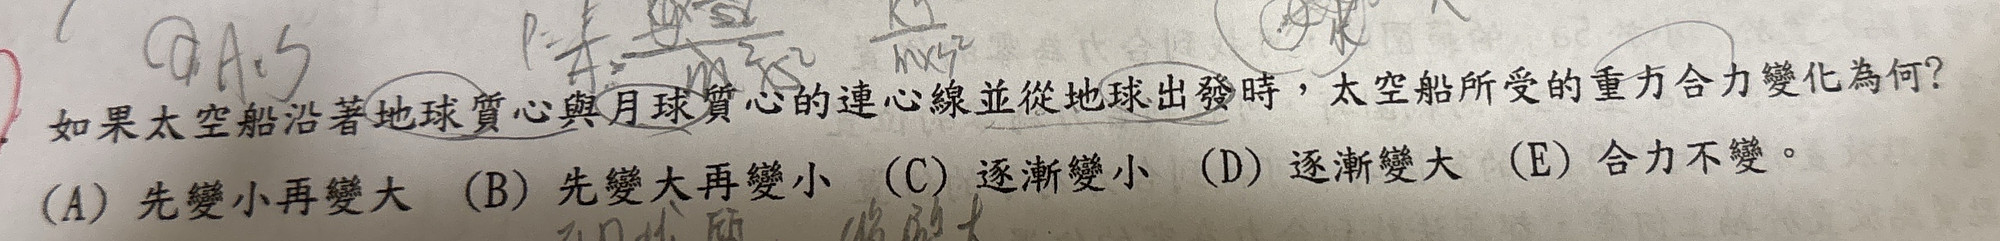 QA.S
如果太空船沿著地球質心與月球質心的連心線並從地球出發時，太空船所受的重力合力變化為何?
(A) 先變小再變大 (B) 先變大再變小 (C) 逐漸變小 (D) 逐漸變大 (E) 合力不變。